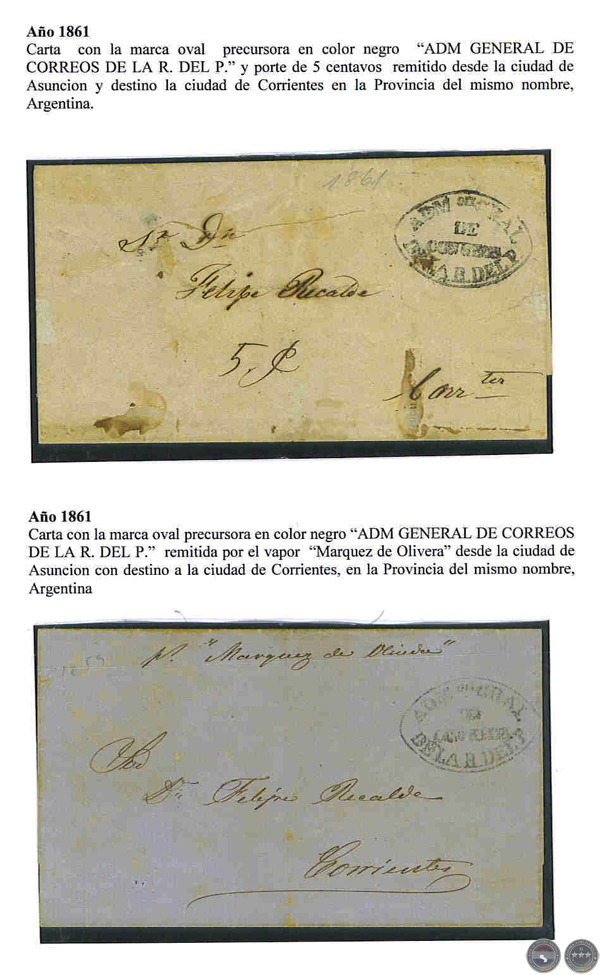 Año 1861
Carta con la marca oval precursora en color negro “ADM GENERAL DE
CORREOS DE LA R. DEL P.” y porte de 5 centavos remitido desde la ciudad de
Asuncion y destino la ciudad de Corrientes en la Provincia del mismo nombre,
Argentina.
1861
ADM DEL GRAL
DE
CORREOS
DE LA R. DEL P.
Sr. Dn
Felipe Recalde
5
Corr.tes
Año 1861
Carta con la marca oval precursora en color negro “ADM GENERAL DE CORREOS
DE LA R. DEL P.” remitida por el vapor “Marquez de Olivera” desde la ciudad de
Asuncion con destino a la ciudad de Corrientes, en la Provincia del mismo nombre,
Argentina
pr. "Marquez de Olinda"
ADM DEL GRAL
DE
CORREOS
DE LA R. DEL P
Dn Felipe Recalde
Corrientes